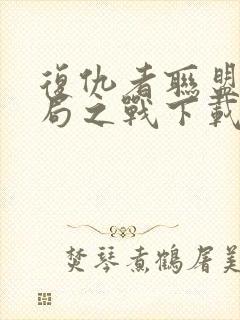 復仇者聯盟
局之戰下載
焚琴煮鶴屠美